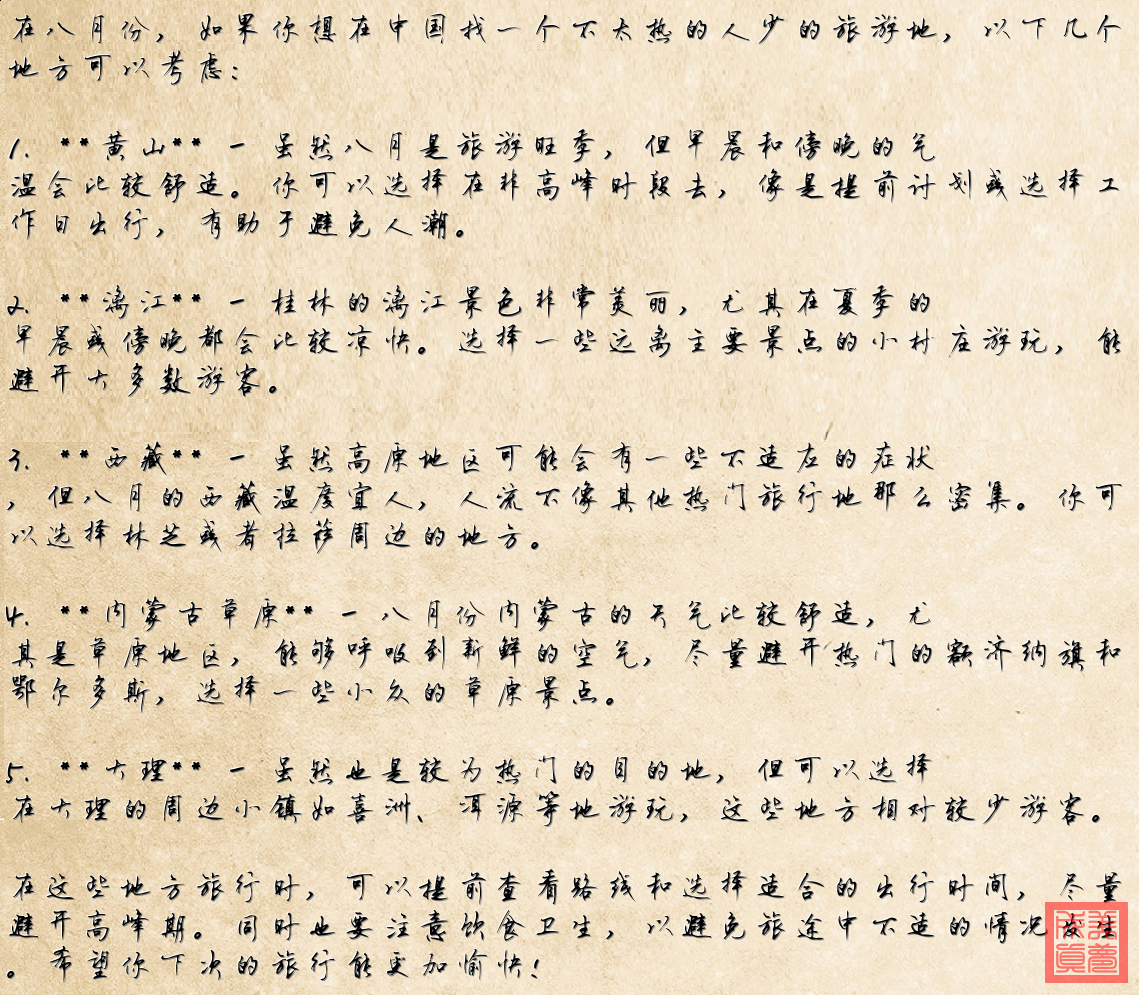 在八月份，如果你想在中国找一个不太热的人少的旅游地，以下几个
地方可以考虑：
1. **黄山** - 虽然八月是旅游旺季，但早晨和傍晚的气
温会比较舒适。你可以选择在非高峰时段去，像是提前计划或选择工
作日出行，有助于避免人潮。
2. **漓江** - 桂林的漓江景色非常美丽，尤其在夏季的
早晨或傍晚都会比较凉快。选择一些远离主要景点的小村庄游玩，能
避开大多数游客。
3. **西藏** - 虽然高原地区可能会有一些不适应的症状
，但八月的西藏温度宜人，人流不像其他热门旅行地那么密集。你可
以选择林芝或者拉萨周边的地方。
4. **内蒙古草原** - 八月份内蒙古的天气比较舒适，尤
其是草原地区，能够呼吸到新鲜的空气，尽量避开热门的额济纳旗和
鄂尔多斯，选择一些小众的草原景点。
5. **大理** - 虽然也是较为热门的目的地，但可以选择
在大理的周边小镇如喜洲、洱源等地游玩，这些地方相对较少游客。
在这些地方旅行时，可以提前查看路线和选择适合的出行时间，尽量
避开高峰期。同时也要注意饮食卫生，以避免旅途中不适的情况发生
。希望你下次的旅行能更加愉快！
美梦成真